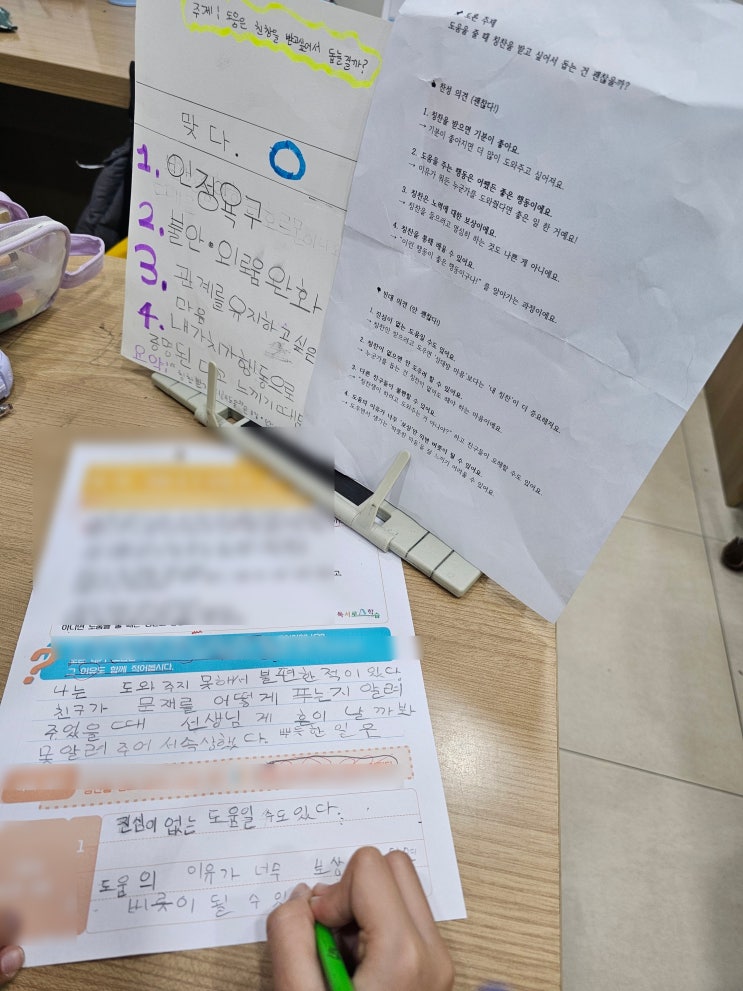 주제: 도움은 칭찬을 받고 싶어서 돕는 걸까?
맞다.
1. 인정욕구
2. 불안·외로움 완화
3. 관계를 유지하고 싶은
마음
4. 내가치가 행동으로
증명된다고 느끼기 때문
요약:
✔ 토론 주제
도움을 줄 때 칭찬을 받고 싶어서 돕는 건 괜찮을까?
찬성 의견 (괜찮다!)
1. 칭찬을 받으면 기분이 좋아요.
→ 기분이 좋아지면 더 많이 도와주고 싶어져요.
2. 도움을 주는 행동은 어쨌든 좋은 행동이에요.
→ 이유가 뭐든 누군가를 도와줬다면 좋은 일 한 거예요!
3. 칭찬은 노력에 대한 보상이에요.
→ 칭찬을 들으려고 열심히 하는 것도 나쁜 게 아니에요.
4. 칭찬을 통해 배울 수 있어요.
→ "이런 행동이 좋은 행동이구나!" 를 알아가는 과정이에요.
반대 의견 (안 괜찮다!)
1. 진심이 없는 도움일 수도 있어요.
→ 칭찬만 받으려고 도우면 '상대방 마음'보다는 '내 칭찬'이 더 중요해져요.
2. 칭찬이 없으면 안 도와줄 수 있어요.
→ 누군가를 돕는 건 칭찬이 없어도 해야 하는 마음이에요.
3. 다른 친구들이 불편할 수 있어요.
→ "칭찬받으려고 도와주는 거 아니야?" 하고 친구들이 오해할 수도 있어요.
4. 도움의 이유가 너무 '보상'만 되면 버릇이 될 수 있어요.
→ 도우면서 생기는 '따뜻한 마음'을 잘 느끼기 어려울 수 있어요.
독서로 학습
그 이유도 함께 적어봅시다.
나는 도와 주지 못해서 불편한 적이 있다.
친구가 문제를 어떻게 푸는지 알려
주었을 때 선생님 게 혼이 날 까봐
못 알려 주어서 속상했다. 뿌듯한 일 은
1
진심이 없는 도움일 수도 있다.
도움의 이유가 너무 보상
버릇이 될 수